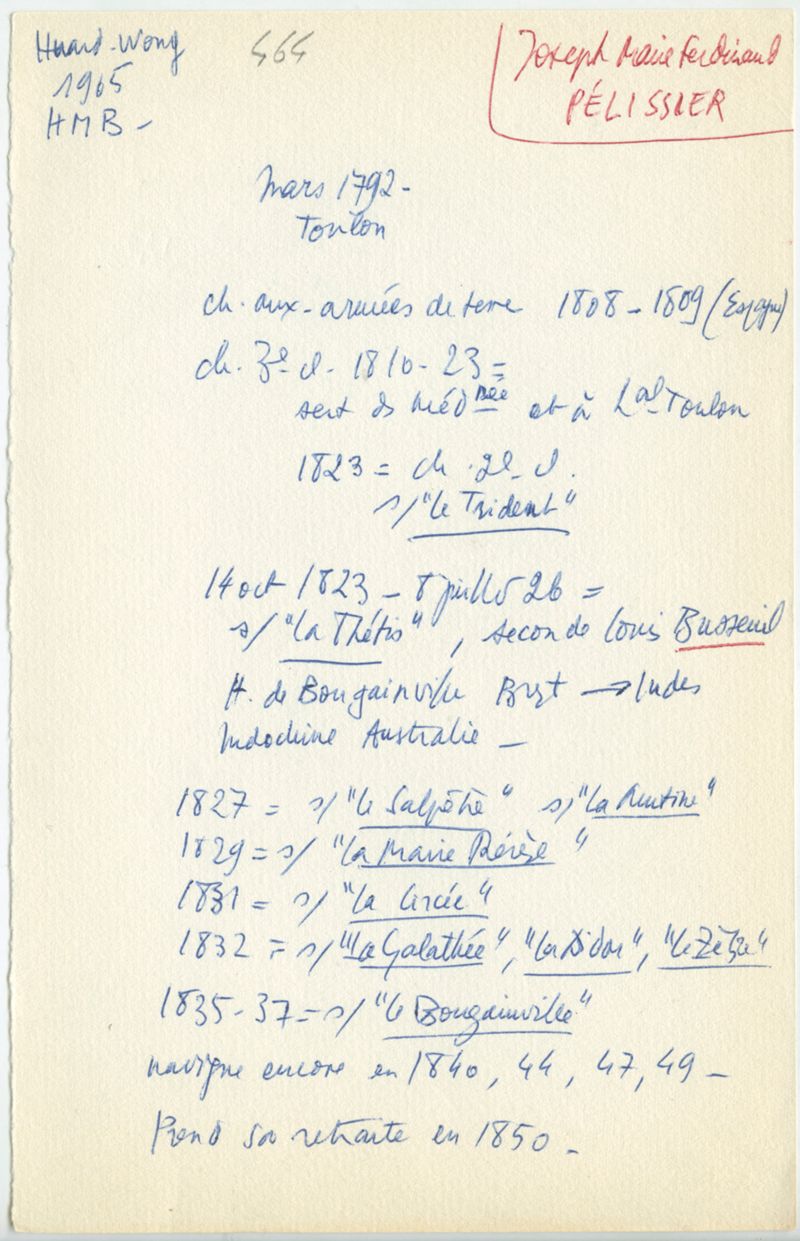 Huard-Wong
1965
HMB -
464
Joseph Marie Ferdinand
PÉLISSIER
Mars 1792 -
Toulon
ch. aux - armées de terre 1808 - 1809 (Espagne)
ch. 3e cl. 1810 - 23 =
sert ds Méd née et à L'al Toulon
1823 = ch. 2e cl.
s/ "le Trident"
14 oct 1823 - 8 juillet 26 =
s/ "la Thétis", seconde Louis Busseuil
H. de Bougainville Brest → Indes
Indochine Australie -
1827 = s/ "le Salpêtre" s/ "La
1829 = s/ "la Marie Thérèse"
1831 = s/ "la Circée"
1832 = s/ "la Galathée", "la Didon", "le Zèbre"
1835 - 37 = s/ "le Bougainville"
navigue encore en 1840, 44, 47, 49 -
Prend sa retraite en 1850 -